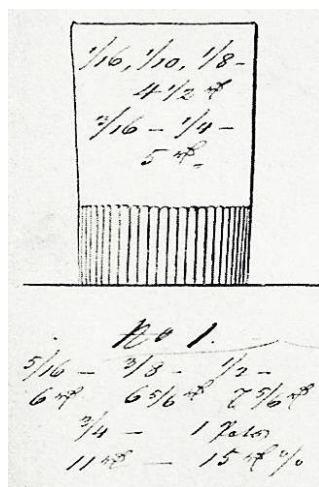 1/16, 1/10, 1/8 -
4 1/2
3/16 - 1/4 -
5
No 1.
5/16 - 3/8 - 1/2 -
6 6 5/6 7 5/6
3/4 - 1
11 - 15 %